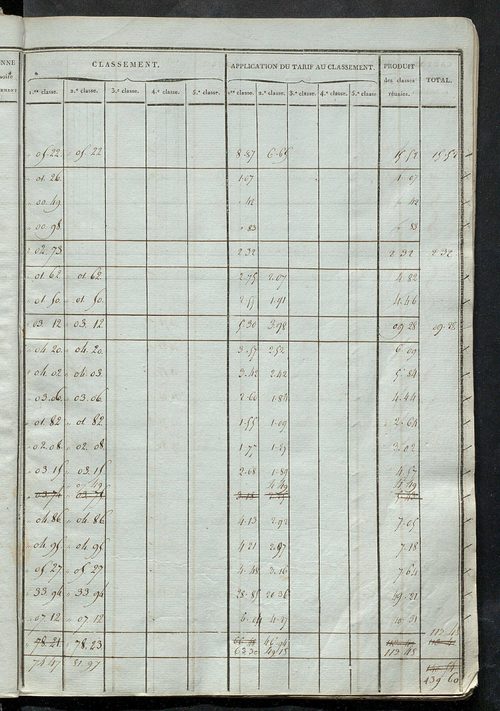 CLASSEMENT. APPLICATION DU TARIF AU CLASSEMENT. PRODUIT des classes réunies. TOTAL.
1.ere classe. 2.e classe. 3.e classe. 4.e classe. 5.e classe. 1.ere classe. 2.e classe. 3.e classe. 4.e classe. 5.e classe
05.22. 05.22 8.87 6.65 15.52 15.52
01.26. 1.07 1.07
00.49. 42 42
00.98. 83 83
02.73. 2.32 2.32 2.32
01.62 01.62 2.75 2.07 4.82
01.50. 01.50. 2.55 1.91 4.46
03.12 03.12 5.30 3.98 09.28 09.28
04.20. 04.20. 3.57 2.52 6.09
04.02 04.03 3.42 2.42 5.84
03.06. 03.06. 2.60 1.84 4.44
01.82 01.82 1.55 1.09 2.64
02.08. 02.08. 1.77 1.25 3.02
03.15 03.15 2.68 1.89 4.57
04.86. 04.86 4.13 2.92 7.05
04.95 04.95 4.21 2.97 7.18
05.27 05.27 4.48 3.16 7.64
33.94 33.94 28.85 20.36 49.21
07.12 07.12 6.04 4.27 10.31
78.21 78.23 113.48
74.47 81.97 63.30 49.18 113.48
139 60